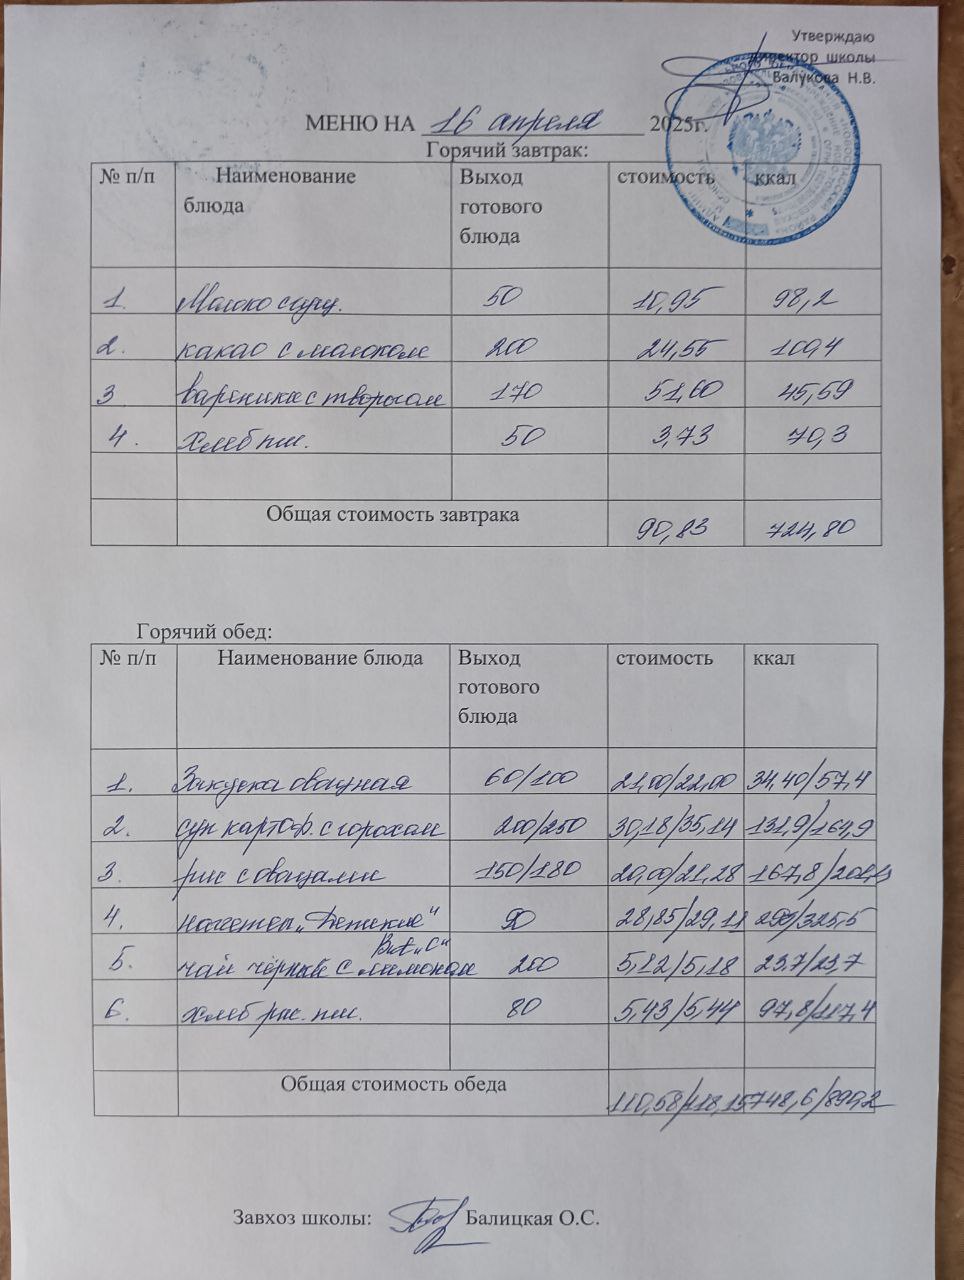 Утверждаю
Директор школы
Валукова Н.В.
МЕНЮ НА 16 апреля 2025г.
Горячий завтрак:
№ п/п Наименование блюда Выход готового блюда стоимость ккал
1. Молоко сгущ. 50 10,95 98,2
2. какао с молоком 200 24,55 100,4
3 вареники с творогом 170 51,60 45,59
4. Хлеб пш. 50 3,73 70,3
Общая стоимость завтрака 90,83 724,80
Горячий обед:
№ п/п Наименование блюда Выход готового блюда стоимость ккал
1. Закуска овощная 60/100 21,00/22,00 34,40/57,4
2. суп картоф. с горохом 200/250 30,18/35,14 131,9/164,9
3. рис с овощами 150/180 20,00/21,28 167,8/
4. наггетсы "Детские" 90 28,85/29,11 /325,5
Вит "С"
5. чай чёрный с лимоном 200 5,12/5,18 23,7/23,7
6. хлеб рж. пш. 80 5,43/5,44 97,8/117,4
Общая стоимость обеда 110,58/118,15 748,6/890,2
Завхоз школы: Балицкая О.С.